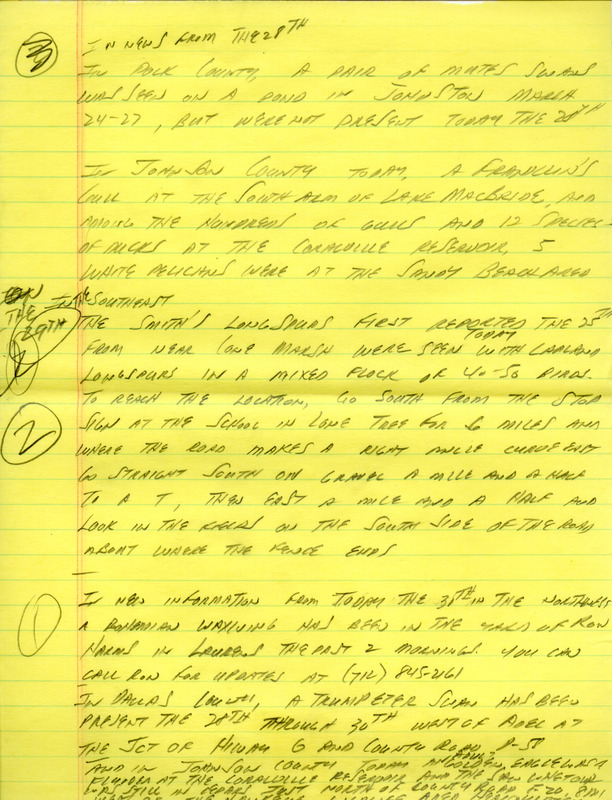 3
IN NEWS FROM THE 28TH
IN POLK COUNTY, A PAIR OF MUTES SWANS
WAS SEEN ON A POND IN JOHNSTON MARCH
24-27, BUT WERE NOT PRESENT TODAY THE 28TH
IN JOHNSON COUNTY TODAY, A FRANKLIN'S
GULL AT THE SOUTH ARM OF LAKE MACBRIDE, AND
AMONG THE HUNDREDS OF GULLS AND 12 SPECIES
OF DUCKS AT THE CORALVILLE RESERVOIR, 5
WHITE PELICANS WERE AT THE SANDY BEACH AREA
ON THE 29TH
IN THE SOUTHEAST
THE SMITH'S LONGSPURS FIRST REPORTED THE 25TH
FROM NEAR CONE MARSH WERE SEEN TODAY WITH LAPLAND
LONGSPURS IN A MIXED FLOCK OF 40-50 BIRDS.
TO REACH THE LOCATION, GO SOUTH FROM THE STOP
2
SIGN AT THE SCHOOL IN LONE TREE FOR 6 MILES AND
WHERE THE ROAD MAKES A RIGHT ANGLE CURVE EAST
GO STRAIGHT SOUTH ON GRAVEL A MILE AND A HALF
TO A T, THEN EAST A MILE AND A HALF AND
LOOK IN THE FIELDS ON THE SOUTH SIDE OF THE ROAD
ABOUT WHERE THE FENCE ENDS
—
1
IN NEW INFORMATION FROM TODAY THE 30TH IN THE NORTHWEST
A BOHEMIAN WAXWING HAS BEEN IN THE YARD OF RON
HARMS IN LAURENS THE PAST 2 MORNINGS. YOU CAN
CALL RON FOR UPDATES AT (712) 845-2161
IN DALLAS COUNTY, A TRUMPETER SWAN HAS BEEN
PRESENT THE 28TH THROUGH 30TH WEST OF ADEL AT
THE JCT OF HIWAY 6 AND COUNTY ROAD P-58
AND IN JOHNSON COUNTY TODAY AN GOLDEN EAGLE WAS
AT THE CORALVILLE RESERVOIR AND THE SAW WHET OWL
WAS STILL IN CEDARS JUST NORTH OF COUNTY ROAD F-20,